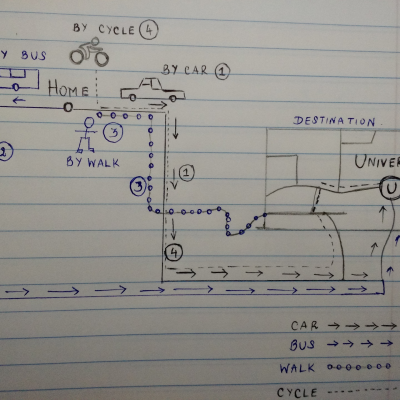 BY CYCLE 4
Y BUS
BY CAR 1
HOME
DESTINATION
3
UNIVER
2
BY WALK
1
3
U
4
CAR
BUS
WALK
CYCLE